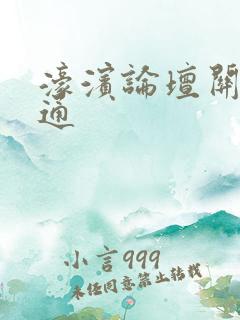 濠濱論壇關
通
小言999
未经同意禁止转载